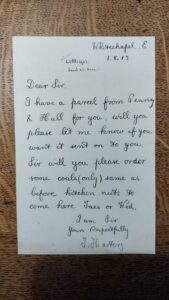 Whitechapel. E
1.8.13
Dear Sir,
I have a parcel from Penny
& Hull for you, will you
please let me know if you
want it sent on to you.
Sir will you please order
some coals (only) same as
before kitchen nuts to
come here Tues or Wed.
I am Sir
Yours Respectfully